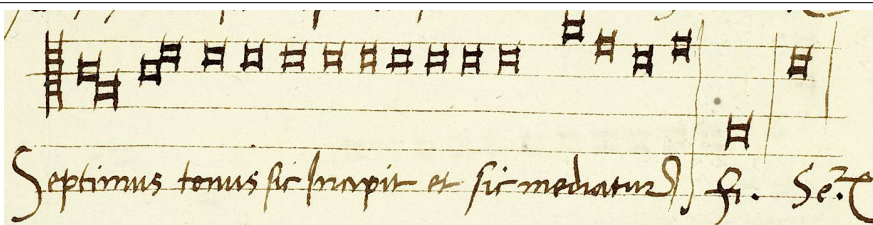 Septimus tonus sic Incipit et sic mediatur fi. Se